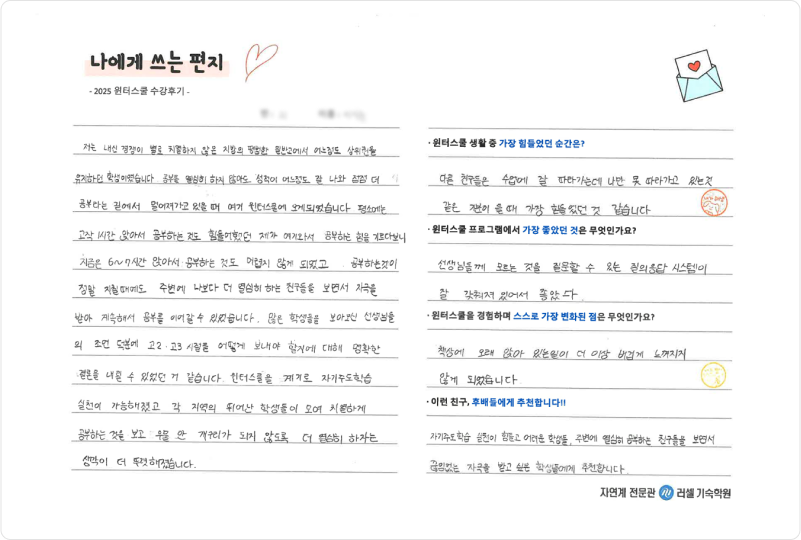 나에게 쓰는 편지
- 2025 윈터스쿨 수강후기 -
저는 내신 경쟁이 별로 치열하지 않은 지방의 평범한 일반고에서 어느정도 상위권을
유지하던 학생이었습니다. 공부를 열심히 하지 않아도 성적이 어느정도 잘 나와 점점 더
공부라는 길에서 멀어져가고 있을 때 여기 윈터스쿨에 오게되었습니다. 평소에는
고작 1시간 앉아서 공부하는 것도 힘들어했던 제가 여기와서 공부하는 힘을 기르다보니
지금은 6~7시간 앉아서 공부하는 것도 어렵지 않게 되었고 공부하는것이
정말 지칠때에도 주변에 나보다 더 열심히 하는 친구들을 보면서 자극을
받아 계속해서 공부를 이어갈 수 있었습니다. 많은 학생들을 보아보신 선생님들
의 조언 덕분에 고2·고3 시절을 어떻게 보내야 할지에 대해 명확한
결론을 내릴 수 있었던 거 같습니다. 윈터스쿨을 계기로 자기주도학습
실천이 가능해졌고 각 지역의 뛰어난 학생들이 모여 치열하게
공부하는 것을 보고 우물 안 개구리가 되지 않도록 더 열심히 하자는
생각이 더 뚜렷해졌습니다.
· 윈터스쿨 생활 중 가장 힘들었던 순간은?
다른 친구들은 수업에 잘 따라가는데 나만 못 따라가고 있는것
같은 기분이 들 때 가장 힘들었던 것 같습니다
· 윈터스쿨 프로그램에서 가장 좋았던 것은 무엇인가요?
선생님들께 모르는 것을 질문할 수 있는 질의응답 시스템이
잘 갖춰져 있어서 좋았다.
· 윈터스쿨을 경험하며 스스로 가장 변화된 점은 무엇인가요?
책상에 오래 앉아 있는일이 더 이상 버겁게 느껴지지
않게 되었습니다.
· 이런 친구, 후배들에게 추천합니다!!
자기주도학습 실천이 힘들고 어려운 학생들, 주변에 열심히 공부하는 친구들을 보면서
끊임없는 자극을 받고 싶은 학생들에게 추천합니다.
자연계 전문관 러셀 기숙학원